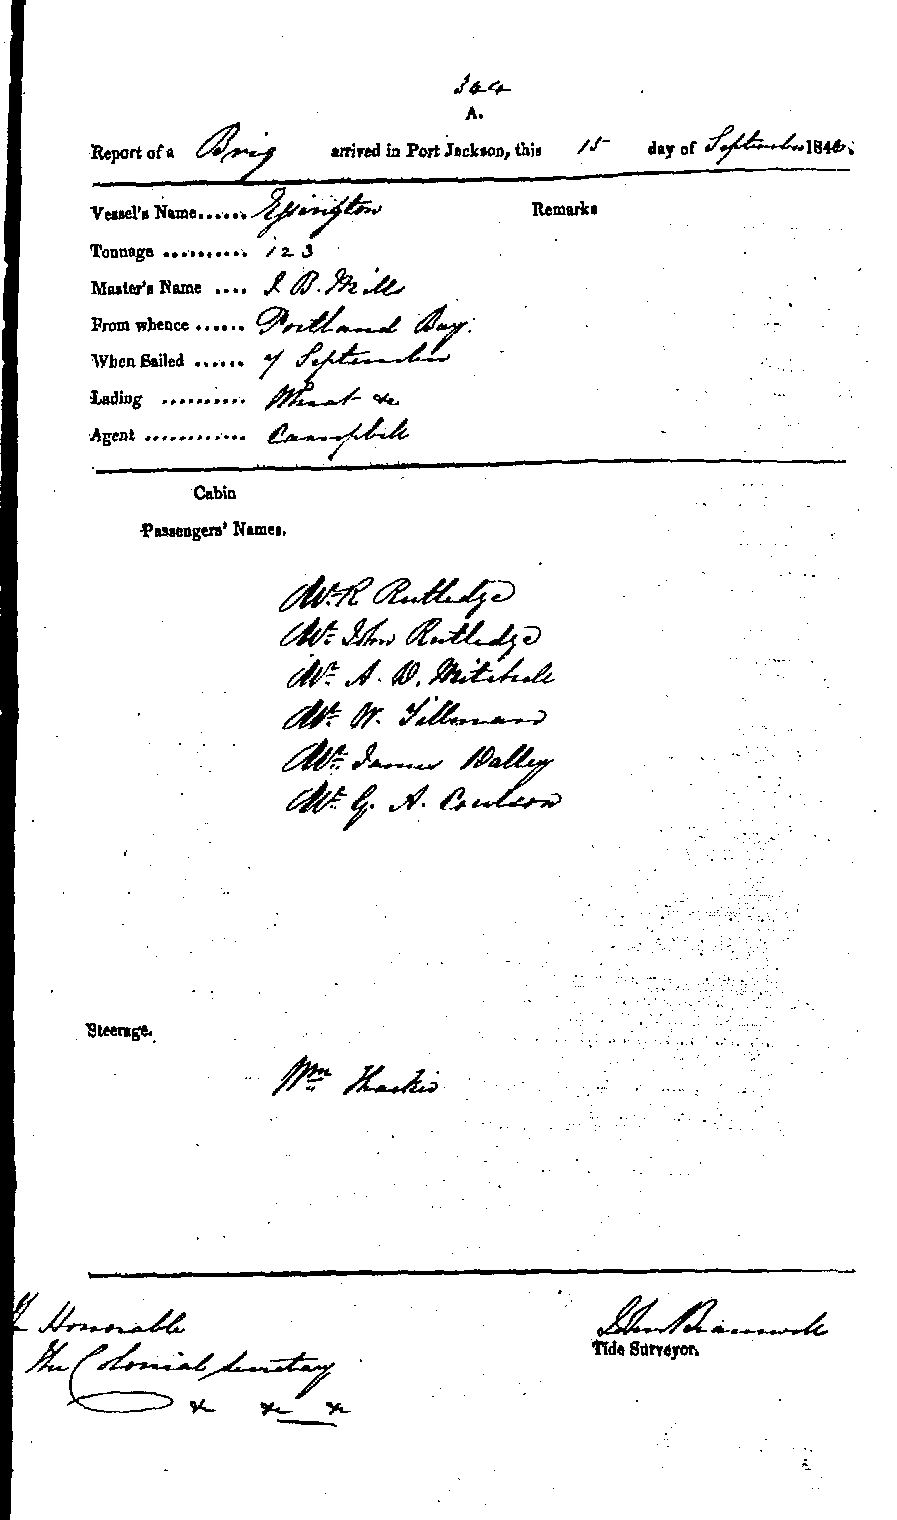 344
A.
Report of a Brig arrived in Port Jackson, this 15 day of September 1846.
Vessel's Name...... Essington Remarks
Tonnage .......... 123
Master's Name .... J. B. Mills
From whence ...... Portland Bay.
When Sailed ...... 7 September
Lading .......... Wheat &c
Agent ............ Campbell
Cabin
Passengers' Names.
Mr. R Rutledge
Mr. John Rutledge
Mr. A. D. Mitchell
Mr. W. Tillman
Mr. James Dalley
Mr. G. A. Coulson
Steerage.
Wm
Honorable
The Colonial Secretary
&c &c &c
John
Tide Surveyor.